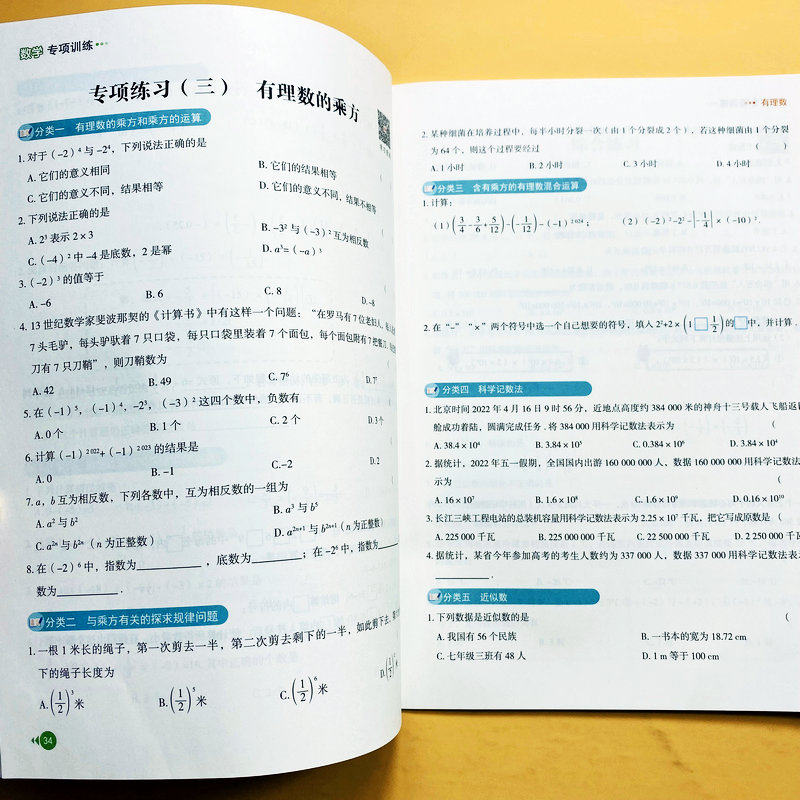 数学 专项训练
专项练习（三） 有理数的乘方
分类一 有理数的乘方和乘方的运算
1. 对于 (-2)⁴ 与 -2⁴，下列说法正确的是 （
A. 它们的意义相同 B. 它们的结果相等
C. 它们的意义不同，结果相等 D. 它们的意义不同，结果不相等
2. 下列说法正确的是 （
A. 2³ 表示 2×3 B. -3² 与 (-3)² 互为相反数
C. (-4)² 中 -4 是底数，2 是幂 D. a³=(-a)³
3. (-2)³ 的值等于 （
A. -6 B. 6 C. 8 D. -8
4. 13 世纪数学家斐波那契的《计算书》中有这样一个问题：“在罗马有 7 位老妇人，每人
7 头毛驴，每头驴驮着 7 只口袋，每只口袋里装着 7 个面包，每个面包附有 7 把餐刀，
刀有 7 只刀鞘”，则刀鞘数为
A. 42 B. 49 C. 7⁶ D. 7⁷
5. 在 (-1)⁵，(-1)⁴，-2³，(-3)² 这四个数中，负数有 （
A. 0 个 B. 1 个 C. 2 个 D. 3 个
6. 计算 (-1)²⁰²²+(-1)²⁰²³ 的结果是 （
A. 0 B. -1 C. -2 D. 2
7. a，b 互为相反数，下列各数中，互为相反数的一组为
A. a² 与 b² B. a³ 与 b⁵
C. a²ⁿ 与 b²ⁿ（n 为正整数） D. a²ⁿ⁺¹ 与 b²ⁿ⁺¹（n 为正整数）
8. 在 (-2)⁶ 中，指数为________，底数为________；在 -2⁶ 中，指数为
数为________.
分类二 与乘方有关的探求规律问题
1. 一根 1 米长的绳子，第一次剪去一半，第二次剪去剩下的一半，如此剪下去，
下的绳子长度为
A. (1/2)³ 米 B. (1/2)⁵ 米 C. (1/2)⁶ 米 D. (1/2)
34
有理数
2. 某种细菌在培养过程中，每半小时分裂一次（由 1 个分裂成 2 个），若这种细菌由 1 个分裂
为 64 个，则这个过程要经过 （ ）
A. 1 小时 B. 2 小时 C. 3 小时 D. 4 小时
分类三 含有乘方的有理数混合运算
1. 计算：
（1）(3/4-3/6+5/12)÷(-1/12)-(-1)²⁰²⁴； （2）(-2)²-2²-|-1/4|×(-10)².
2. 在“-”“×”两个符号中选一个自己想要的符号，填入 2²+2×(1□1/2) 的□中，并计算.
分类四 科学记数法
1. 北京时间 2022 年 4 月 16 日 9 时 56 分，近地点高度约 384 000 米的神舟十三号载人飞船返
舱成功着陆，圆满完成任务. 将 384 000 用科学记数法表示为 （
A. 38.4×10⁴ B. 3.84×10⁵ C. 0.384×10⁶ D. 3.84×10⁴
2. 据统计，2022 年五一假期，全国国内出游 160 000 000 人，数据 160 000 000 用科学记数法
示为 （
A. 16×10⁷ B. 1.6×10⁸ C. 1.6×10⁹ D. 0.16×10¹⁰
3. 长江三峡工程电站的总装机容量用科学记数法表示为 2.25×10⁷ 千瓦，把它写成原数是 （
A. 225 000 千瓦 B. 225 000 000 千瓦 C. 22 500 000 千瓦 D. 2 250 000 千
4. 据统计，某省今年参加高考的考生人数约为 337 000 人，数据 337 000 用科学记数法表
________.
分类五 近似数
1. 下列数据是近似数的是 （
A. 我国有 56 个民族 B. 一书本的宽为 18.72 cm
C. 七年级三班有 48 人 D. 1 m 等于 100 cm